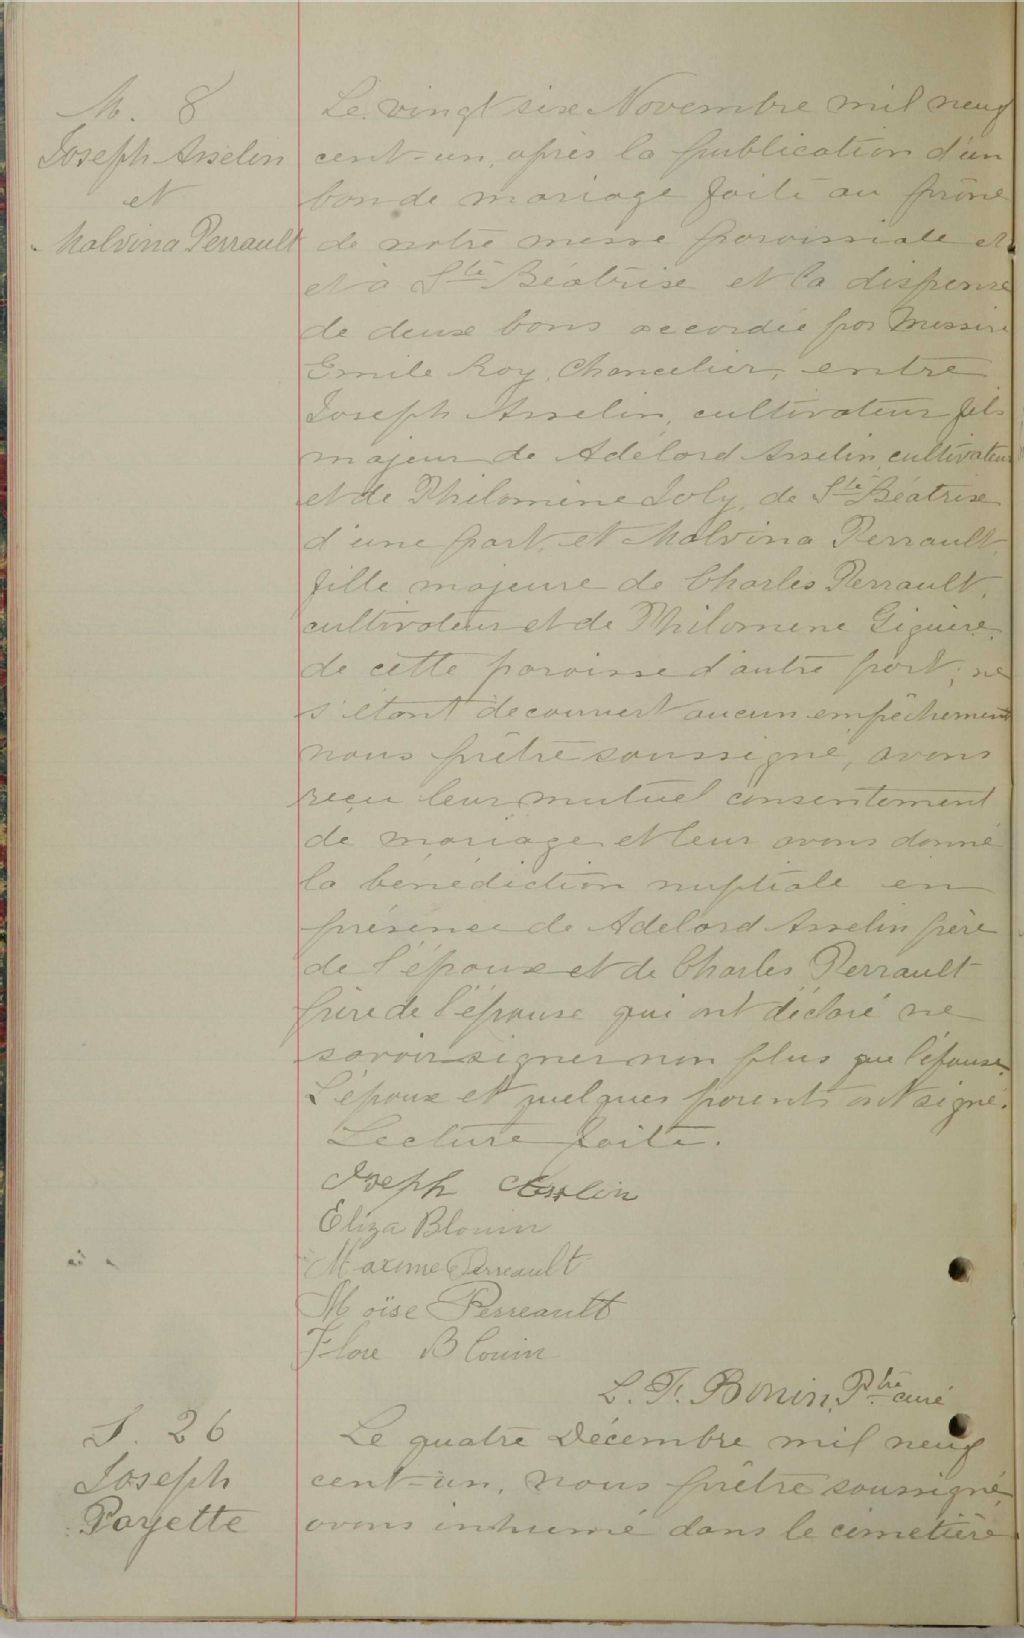 M. 8
Joseph Asselin
et
Malvina Perrault
Le vingt six Novembre mil neuf
cent-un, après la publication d'un
ban de mariage faite au prône
de notre messe paroissiale et
et à Ste Béatrise et la dispense
de deux bans accordée par Messire
Emile Roy, Chancelier, entre
Joseph Asselin, cultivateur fils
majeur de Adélard Asselin, cultivateur
et de Philomène Joly, de Ste Béatrise
d'une part, et Malvina Perrault,
fille majeure de Charles Perrault,
cultivateur et de Philomene Giguère,
de cette paroisse d'autre part; ne
s'étant découvert aucun empêchement
nous prêtre soussigné, avons
reçu leur mutuel consentement
de mariage et leur avons donné
la bénédiction nuptiale en
présence de Adelard Asselin père
de l'époux et de Charles Perrault
père de l'épouse qui ont déclaré ne
savoir signer non plus que l'épouse.
L'époux et quelques parents ont signé.
Lecture faite.
Joseph Asselin
Eliza Blouin
Maxime Perreault
Moïse Perreault
Flore Blouin
L. F. Bonin, Ptre curé
S. 26
Joseph
Payette
Le quatre Décembre mil neuf
cent-un, nous prêtre soussigné,
avons inhumé dans le cimetière